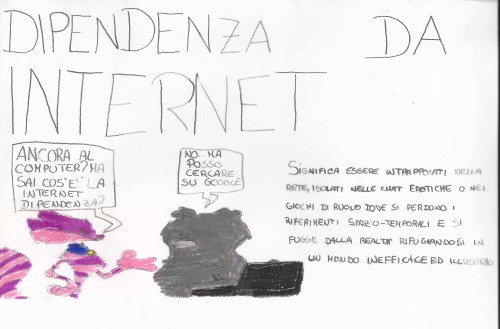 DIPENDENZA DA
INTERNET
ANCORA AL
COMPUTER? MA
SAI COS'E' LA
INTERNET
DIPENDENZA?
NO. MA
POSSO
CERCARE
SU GOOGLE
SIGNIFICA ESSERE INTRAPPOLATI NELLA
RETE, ISOLATI NELLE CHAT EROTICHE O NEI
GIOCHI DI RUOLO DOVE SI PERDONO I
RIFERIMENTI SPAZIO-TEMPORALI E SI
FUGGE DALLA REALTA' RIFUGIANDOSI IN
UN MONDO INEFFICACE ED ILLUSORIO